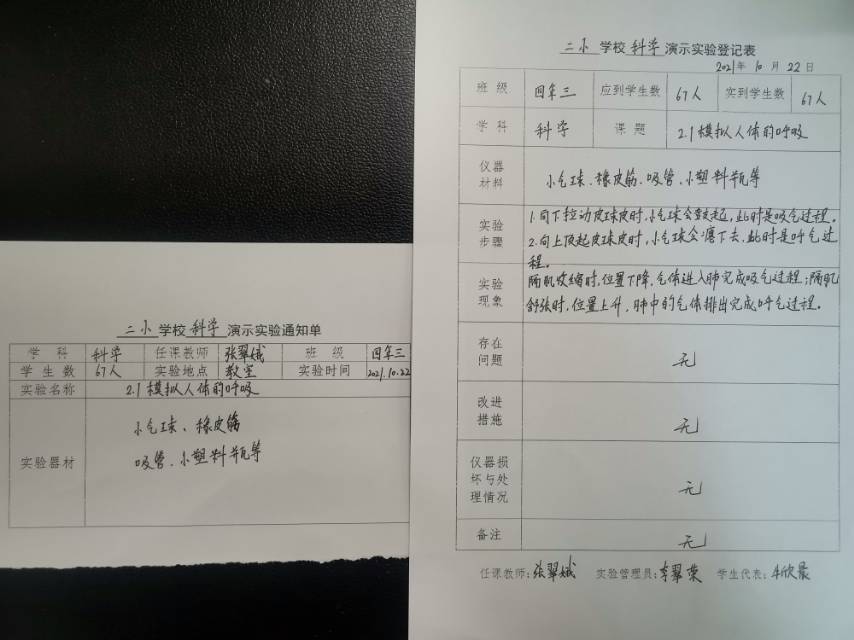 二小 学校 科学 演示实验通知单
学科 科学 任课教师 张翠娥 班级 四年三
学生数 67人 实验地点 教室 实验时间 2021.10.22
实验名称 2.1模拟人体的呼吸
小气球、橡皮筋
实验器材 吸管、小塑料瓶等
二小 学校 科学 演示实验登记表
2021年 10 月 22 日
班级 四年三 应到学生数 67人 实到学生数 67人
学科 科学 课题 2.1模拟人体的呼吸
仪器
材料 小气球、橡皮筋、吸管、小塑料瓶等
1.向下拉动皮球皮时,小气球会鼓起,此时是吸气过程。
实验
步骤 2.向上顶起皮球皮时,小气球会瘪下去,此时是呼气过
程。
隔肌收缩时,位置下降,气体进入肺完成吸气过程;隔肌
实验
现象 舒张时,位置上升,肺中的气体排出完成呼气过程。
存在
问题 无
改进
措施 无
仪器损
坏与处
理情况 无
备注 无
任课教师:张翠娥 实验管理员:李翠荣 学生代表:牛欣晨